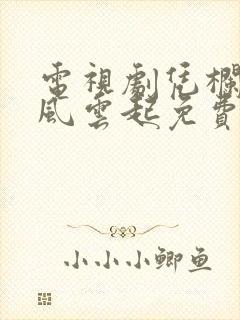 電視劇凭欄
風雲起免費
小小小鲫鱼